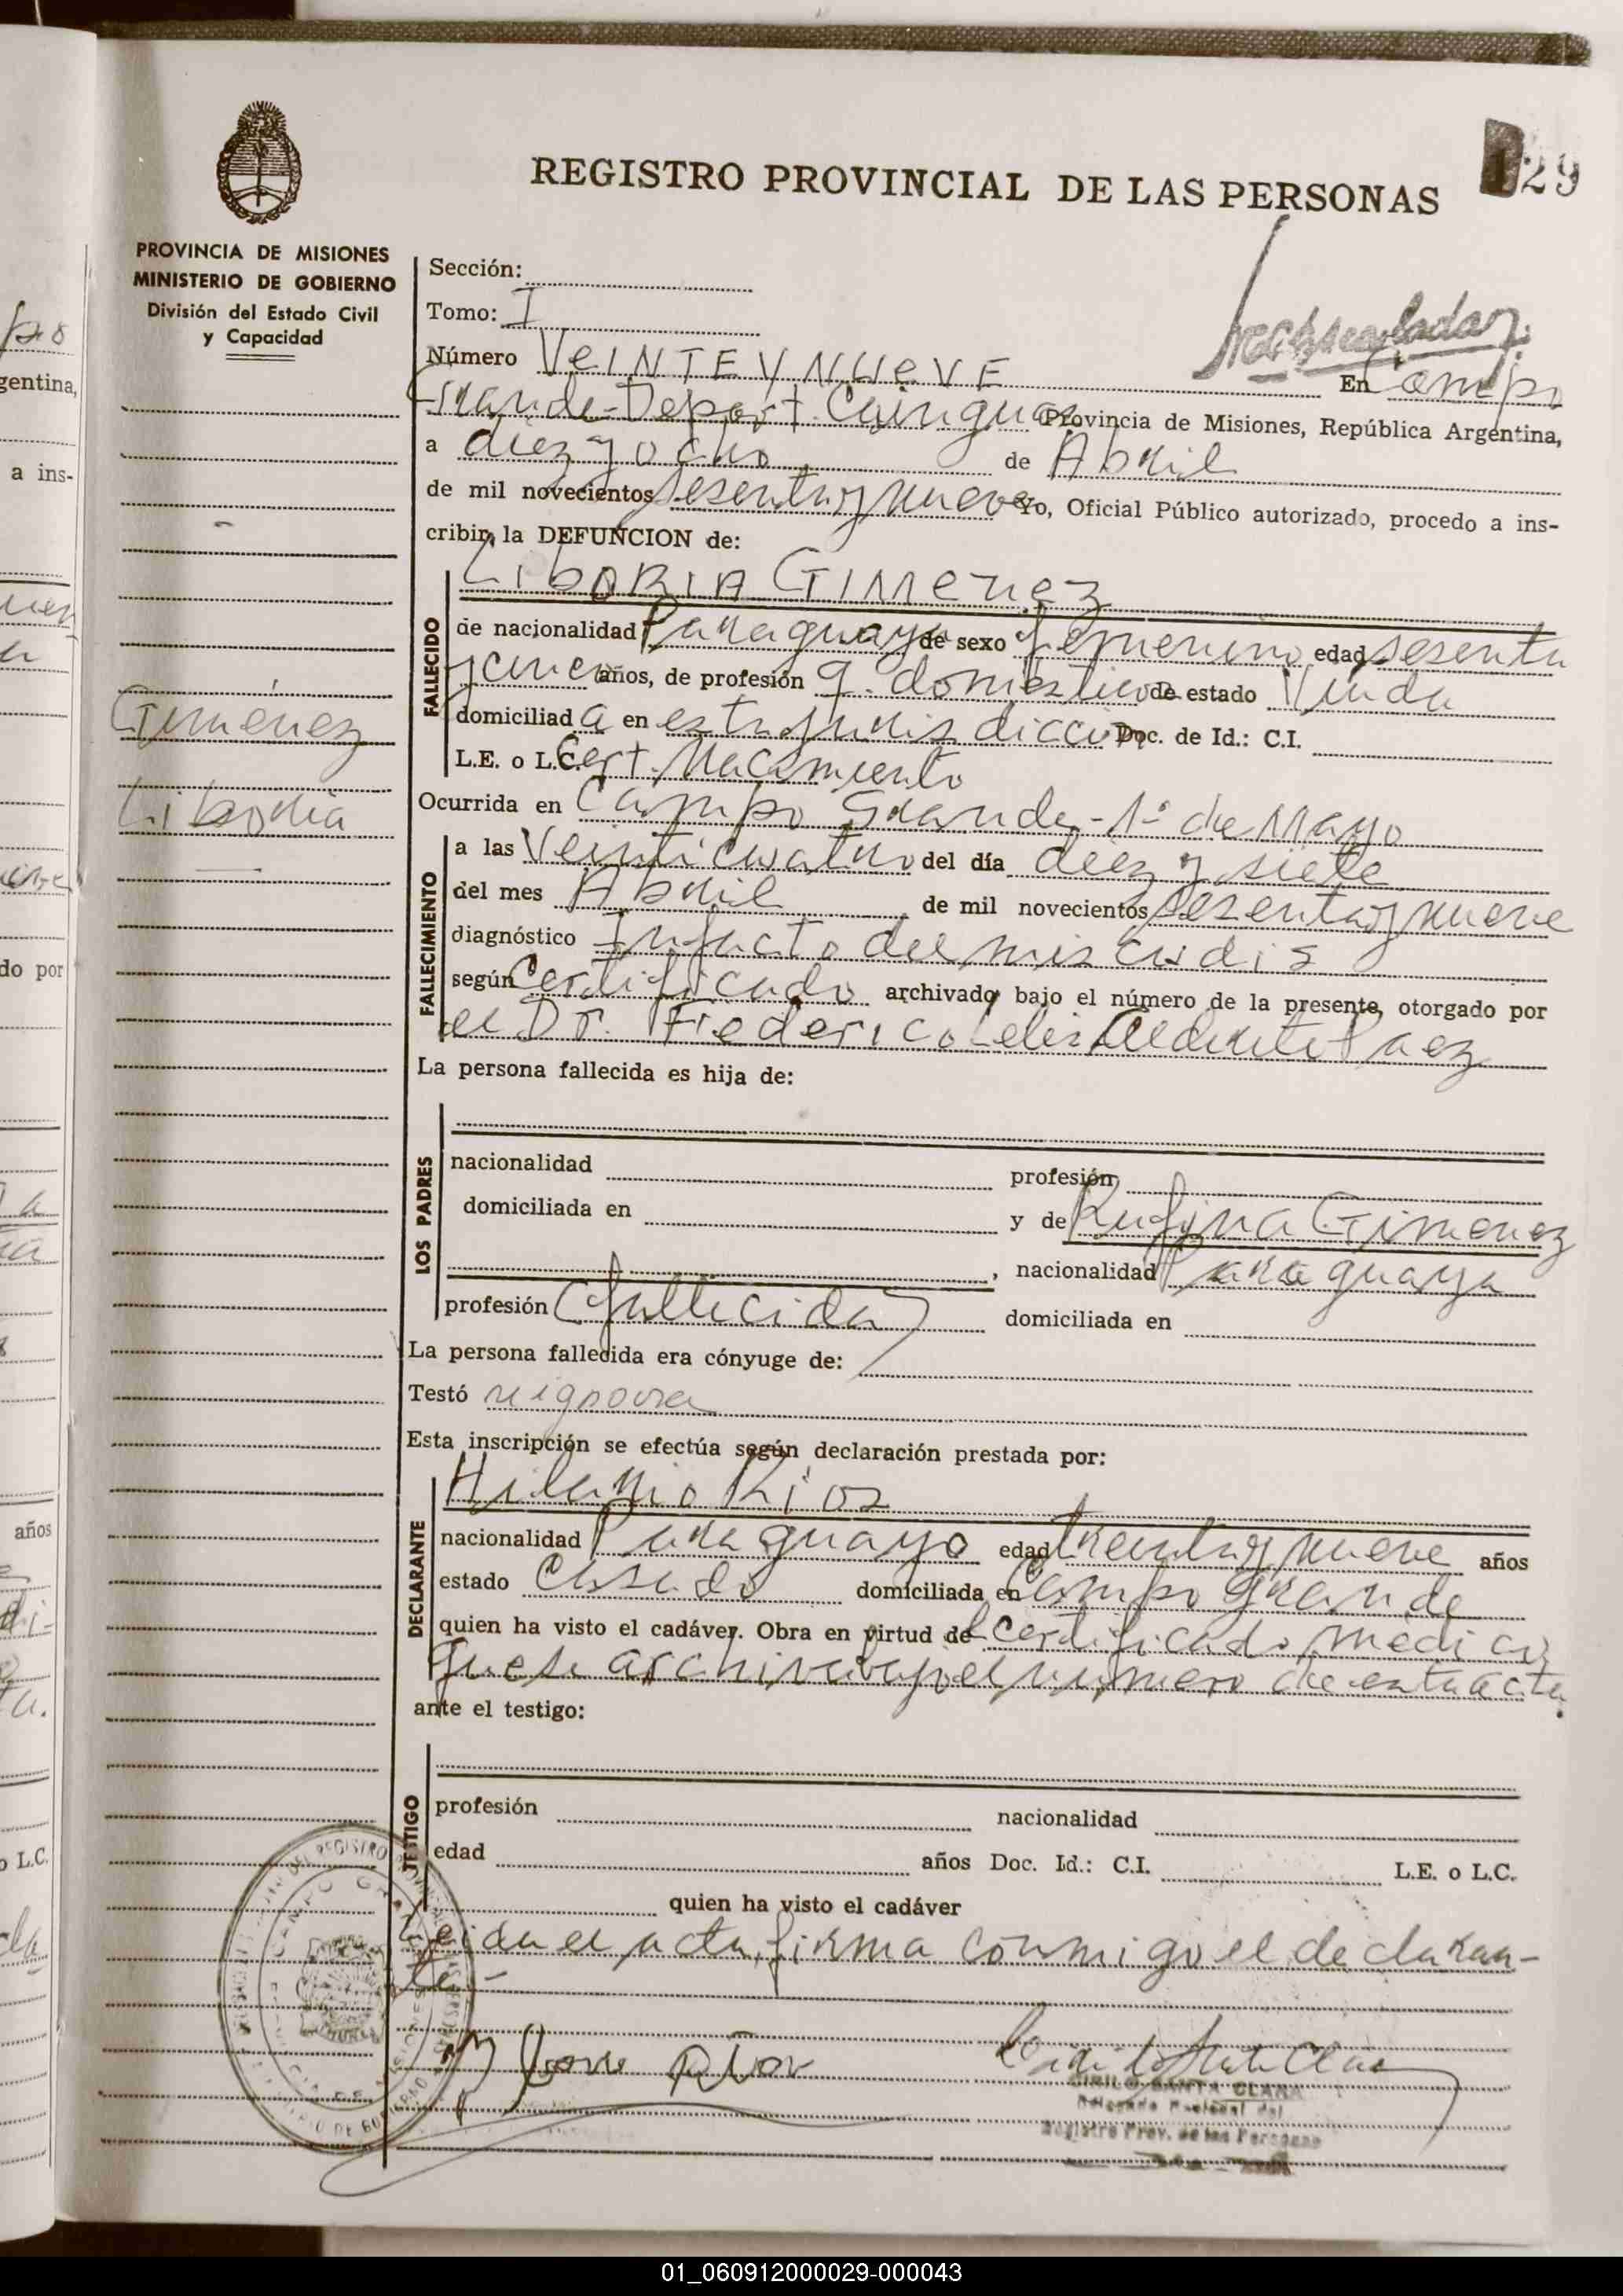 REGISTRO PROVINCIAL DE LAS PERSONAS
29
PROVINCIA DE MISIONES
MINISTERIO DE GOBIERNO
División del Estado Civil
y Capacidad
Giménez
Liboria
Sección:
Tomo: I
Número VeINTE Y NUeVE En Campo
Grande - Depart. Cainguas Provincia de Misiones, República Argentina,
a diez y ocho de Abril
de mil novecientos sesenta y nueve Yo, Oficial Público autorizado, procedo a ins-
cribir, la DEFUNCION de:
LIbORIA GIMenez
FALLECIDO
de nacionalidad Paraguaya de sexo femenino edad sesenta
y cinco años, de profesión q. domésticos de estado Viuda
domiciliada en esta jurisdicción Doc. de Id.: C.I.
L.E. o L.C. Cert. Nacimiento
Ocurrida en Campo Grande - 1º de Mayo
FALLECIMIENTO
a las Veinticuatro del día diez y siete
del mes Abril de mil novecientos sesenta y nueve
diagnóstico Infacto del
según Certificado archivado bajo el número de la presente, otorgado por
el Dr. Federico Paez
La persona fallecida es hija de:
LOS PADRES
nacionalidad profesión
domiciliada en y de Rufina Gimenez
, nacionalidad Paraguaya
profesión (fallecida) domiciliada en
La persona fallecida era cónyuge de:
Testó
Esta inscripción se efectúa según declaración prestada por:
DECLARANTE
Hilario Rios
nacionalidad Paraguayo edad treinta y nueve años
estado Casado domiciliada en Campo Grande
quien ha visto el cadáver. Obra en virtud del certificado médico
que se archiva bajo el numero de esta acta.
ante el testigo:
TESTIGO
profesión nacionalidad
edad años Doc. Id.: C.I. L.E. o L.C.
quien ha visto el cadáver
Leida el acta, firma conmigo el declaran-
te.-
CIRILO SANTA CLARA
Registro Prov. de las Personas
gentina,
a ins-
do por
años
o L.C.
01_060912000029-000043